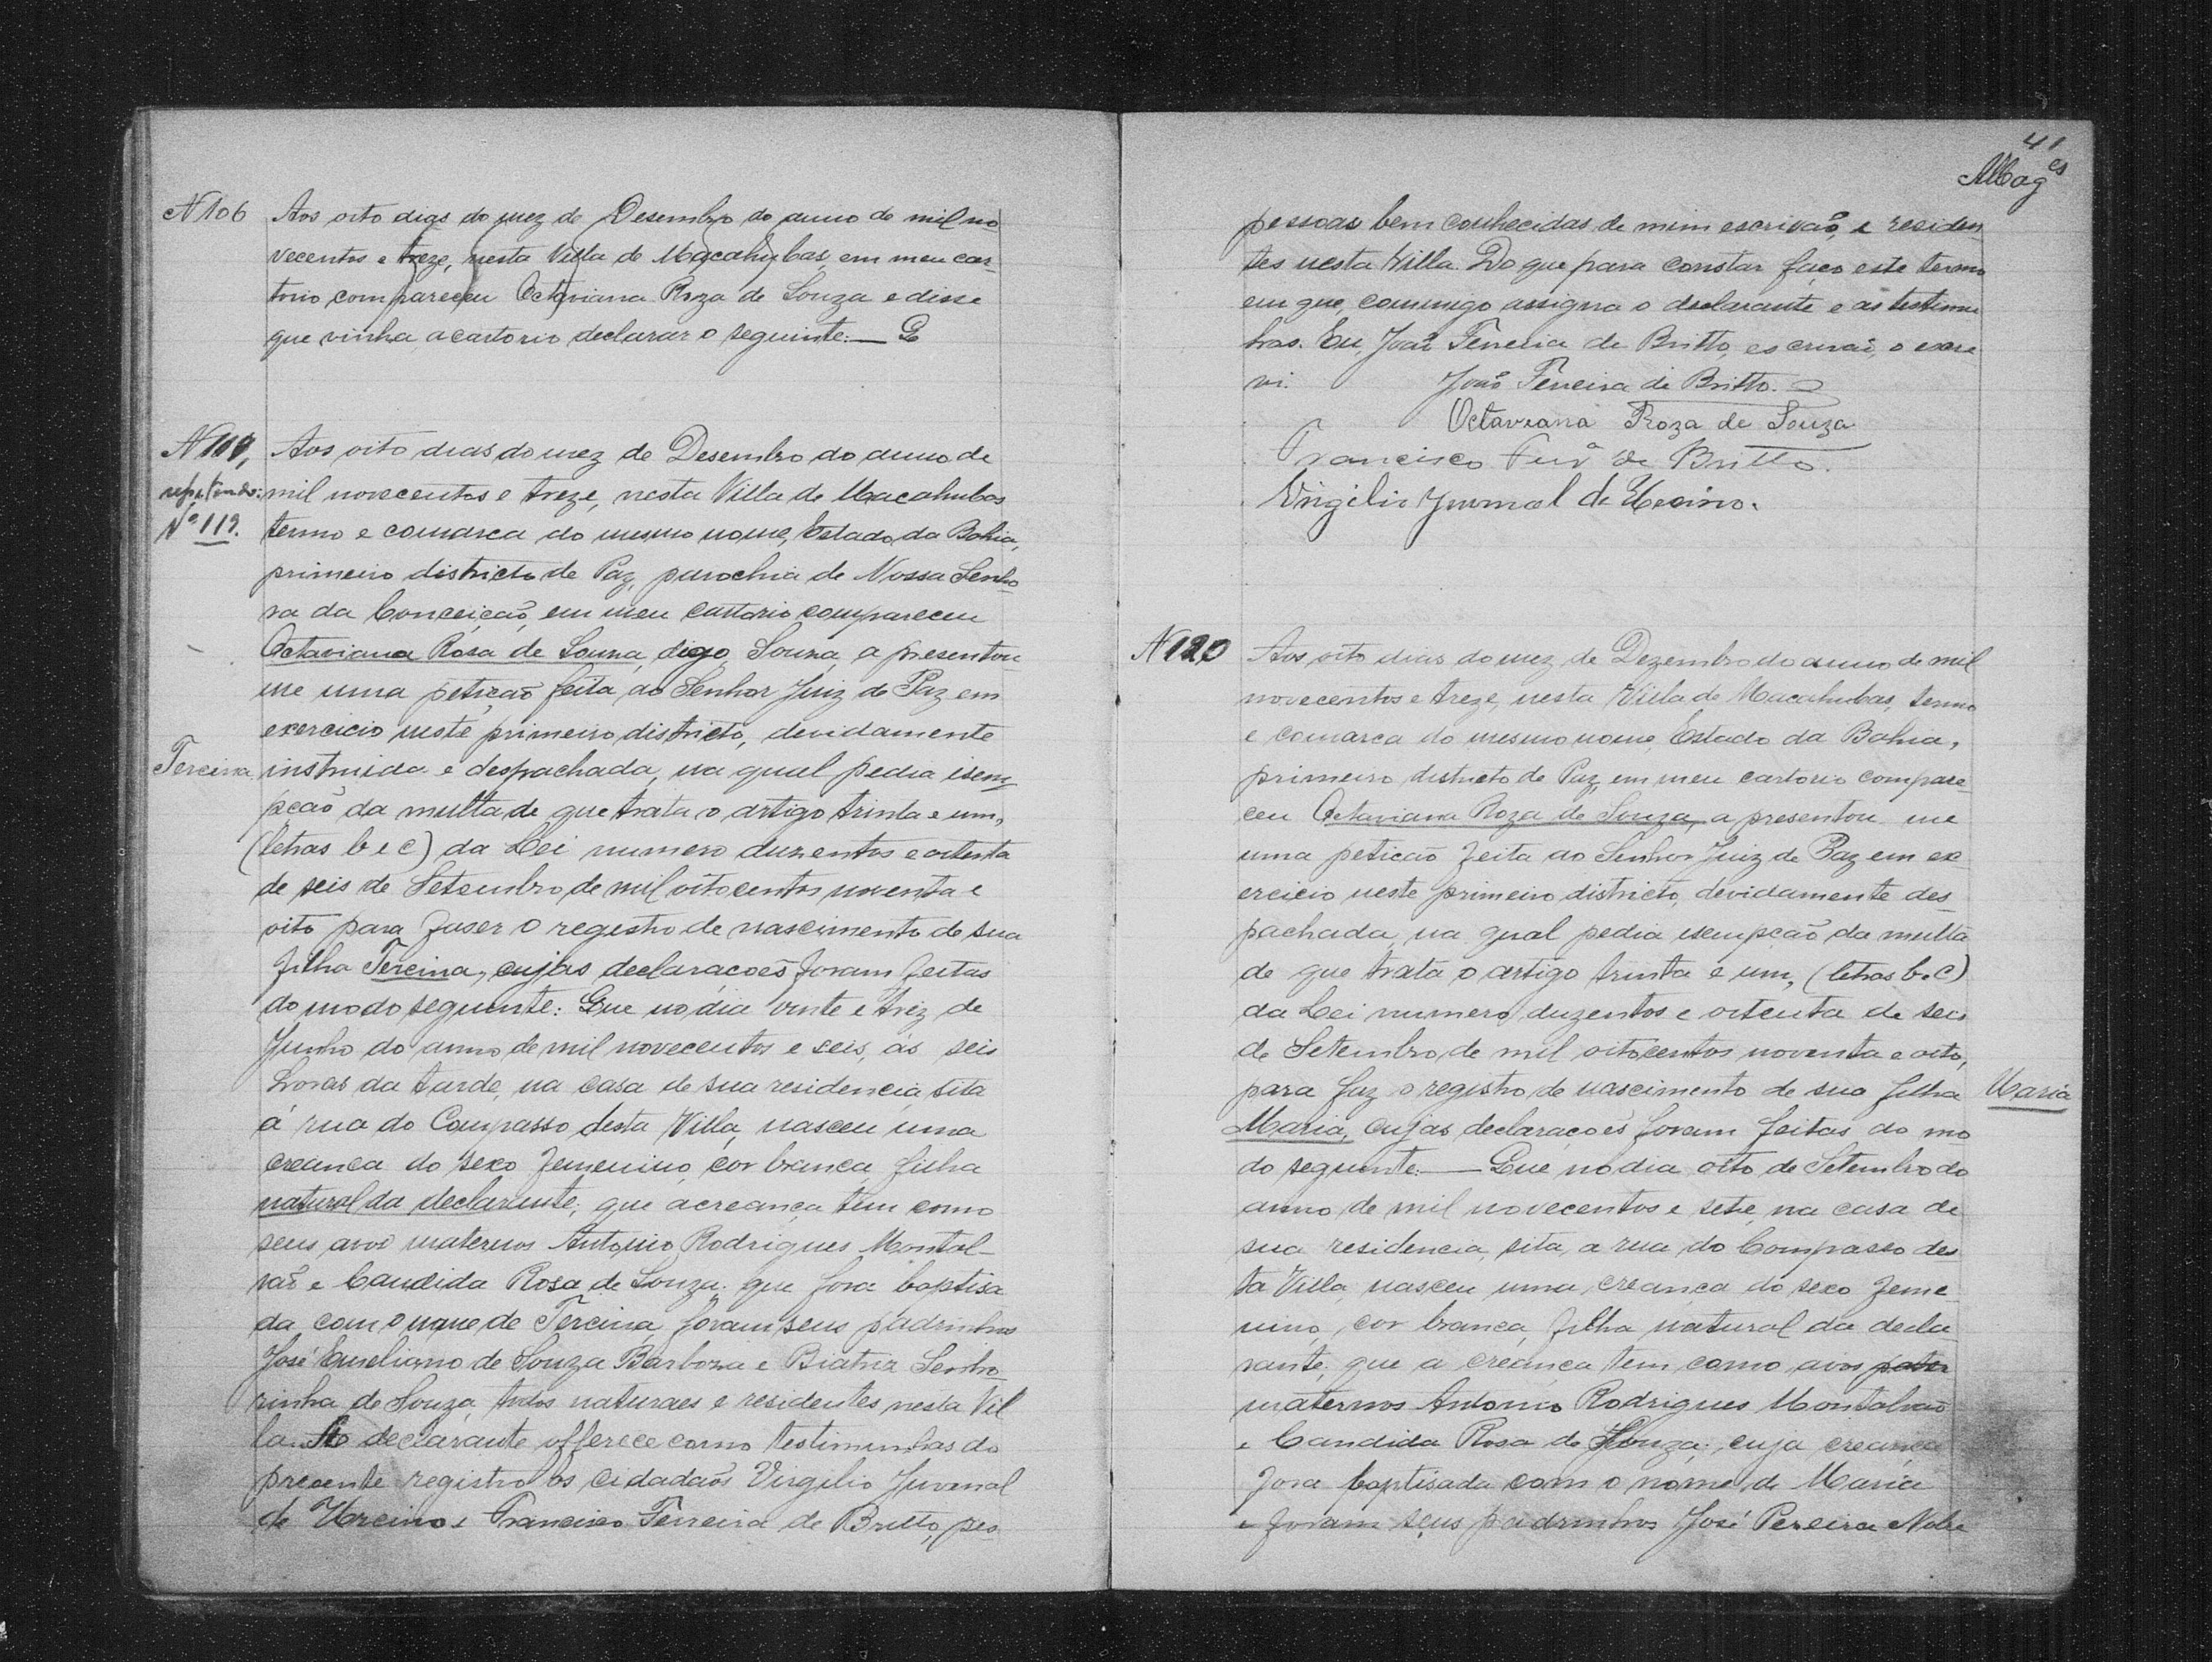 N 106 Aos oito dias do mez de Desembro do anno de mil no
vecentos e treze, nesta Villa de Macahubas em meu car-
torio compareceu Octaviana Roza de Souza e disse
que vinha a cartorio declarar o seguinte:—
N 107, Aos oito dias do mez de Desembro do anno de
mil novecentos e treze, nesta Villa de Macahubas
Nº 119. termo e comarca do mesmo nome, Estado da Bahia,
primeiro districto de Paz, parochia de Nossa Senho-
ra da Conceição, em meu cartorio compareceu
Octaviana Rosa de Souza, digo Souza, a presentou
me uma petição feita ao Senhor Juiz de Paz em
exercicio neste primeiro districto, devidamente
Tercina instruida e despachada, na qual pedia isem-
pção da multa de que trata o artigo trinta e um,
(letras b e c) da Lei numero duzentos e oitenta
de seis de Setembro de mil oitocentos noventa e
oito para faser o registro de nascimento de sua
filha Tercina, cujas declarações foram feitas
do modo seguinte: Que no dia vinte e trez de
Junho do anno de mil novecentos e seis, ás seis
horas da tarde, na casa de sua residencia sita
á rua do Compasso desta Villa, nasceu uma
creança do sexo femenino, cor branca, filha
natural da declarante; que a creança tem como
seus avos maternos Antonio Rodrigues Montal-
vão e Candida Rosa de Souza; que fora baptisa
da com o nome de Tercina, foram seus padrinhos
José Emeliano de Souza Barboza e Biatriz Senho-
rinha de Souza, todos naturaes e residentes nesta Vil
la. declarante offerece como testimunhas do
presente registro os cidadãos Virgilio Juvenal
de Urcino e Francisco Ferreira de Britto, pes-
41
Mag es
pessoas bem conhecidas de mim escrivão, e residen
tes nesta Villa. Do que para constar faço este termo
em que, commigo assigna o declarante e as testimu
nhas. Eu, João Ferreira de Britto, escrivão, o escre
vi. João Ferreira de Britto.
Octaviana Roza de Souza
Francisco Ferª de Britto.
Virgilio Juvenal de Urcino.
N 120 Aos oito dias do mez de Dezembro do anno de mil
novecentos e treze, nesta Villa de Macahubas, termo
e comarca do mesmo nome, Estado da Bahia,
primeiro districto de Paz, em meu cartorio compare-
ceu Octaviana Roza de Souza, a presentou me
uma petição feita ao Senhor Juiz de Paz em ex
ercicio neste primeiro districto, devidamente des
pachada, na qual pedia isempção da multa
de que trata o artigo trinta e um, (letras b. c)
da Lei numero duzentos e oitenta de seis
de Setembro de mil oitocentos noventa e oito,
para faz o registro de nascimento de sua filha Maria
Maria, cujas declarações foram feitas do mo
do seguinte:— Que no dia oito de Setembro do
anno de mil novecentos e sete, na casa de
sua residencia, sita, a rua do Compasso des
ta Villa, nasceu uma creança do sexo feme-
nino, cor branca, filha natural da decla
rante; que a creança tem como avos pater
maternos Antonio Rodrigues Montalvão
e Candida Rosa de Souza; cuja creança
fora baptisada com o nome de Maria
e foram seus padrinhos José Pereira Nobre